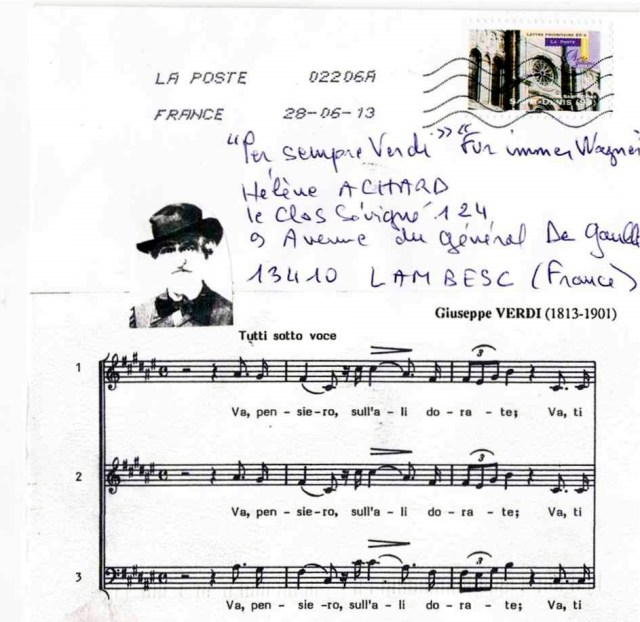 LETTRE PRIORITAIRE 20 g
LA POSTE
LA POSTE 02206A
FRANCE 28-06-13
"Per sempre Verdi" "Für immer Wagner
Hélène ACHARD
le Clos Sévigné 124
9 Avenue du général De Gaulle
13410 LAMBESC (France)
Giuseppe VERDI (1813-1901)
Tutti sotto voce
1
Va, pen - sie-ro, sull'a - li do - ra - te; Va, ti
2
Va, pen - sie-ro, sull'a - li do - ra - te; Va, ti
3
Va, pen - sie -ro, sull'a - li do - ra - te; Va, ti